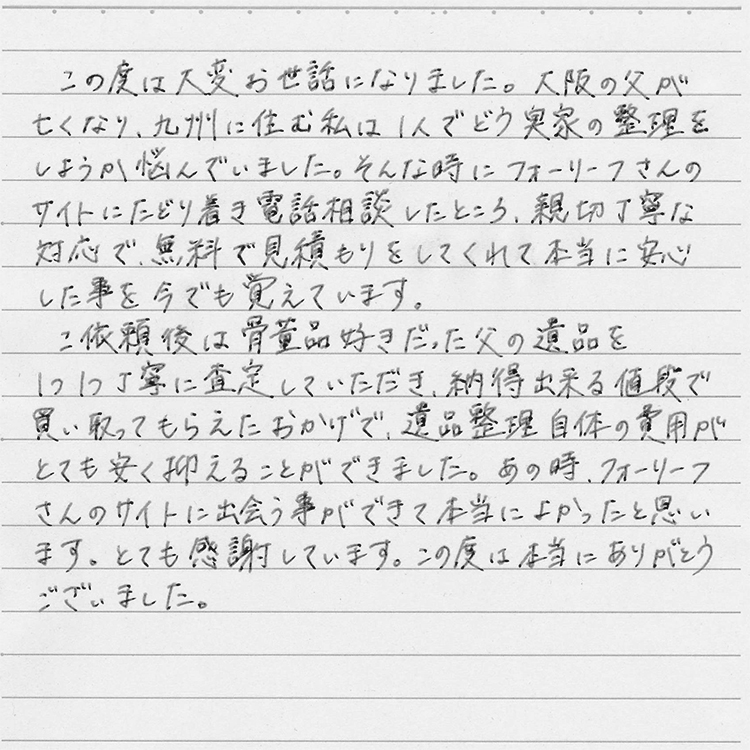 この度は大変お世話になりました。大阪の父が
亡くなり、九州に住む私は1人でどう実家の整理を
しようか悩んでいました。そんな時にフォーリーフさんの
サイトにたどり着き電話相談したところ、親切丁寧な
対応で、無料で見積もりをしてくれて本当に安心
した事を今でも覚えています。
ご依頼後は骨董品好きだった父の遺品を
1つ1つ丁寧に査定していただき、納得出来る値段で
買い取ってもらえたおかげで、遺品整理自体の費用が
とても安く抑えることができました。あの時、フォーリーフ
さんのサイトに出会う事ができて本当によかったと思い
ます。とても感謝しています。この度は本当にありがとう
ございました。